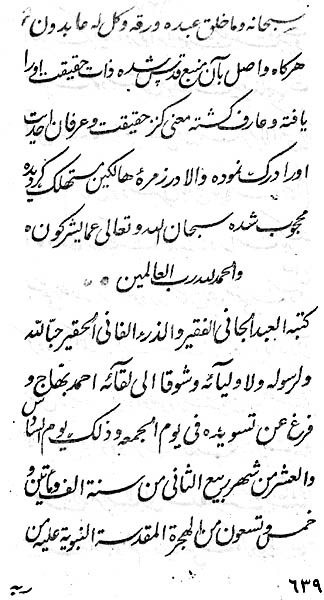 سبحانه وما خلق عبده ورقه وكل له عابدون
هرکاه واصل بآن منبع قدس شده ذات حقیقت اورا
یافته وعارف کشته معنی کنز حقیقت وعرفان احدیت
اورا درک نموده والا در زمرهٔ هالکین مستهلک گردیده
محجوب شده سبحان الله وتعالی عما یشرکون ه
والحمد لله رب العالمین
کتبه العبد الجانی الفقیر والذرء الفانی الحقیر حبّا لله
ولرسوله ولاولیآئه وشوقا الی لقآئه احمد و
فرغ عن تسویده فی یوم الجمعه وذلک یوم السادس
والعشر من شهر ربیع الثانی من سنة الف وماتین و
خمس وتسعون من الهجرة المقدسة النبویة علیه من
٦٣٩